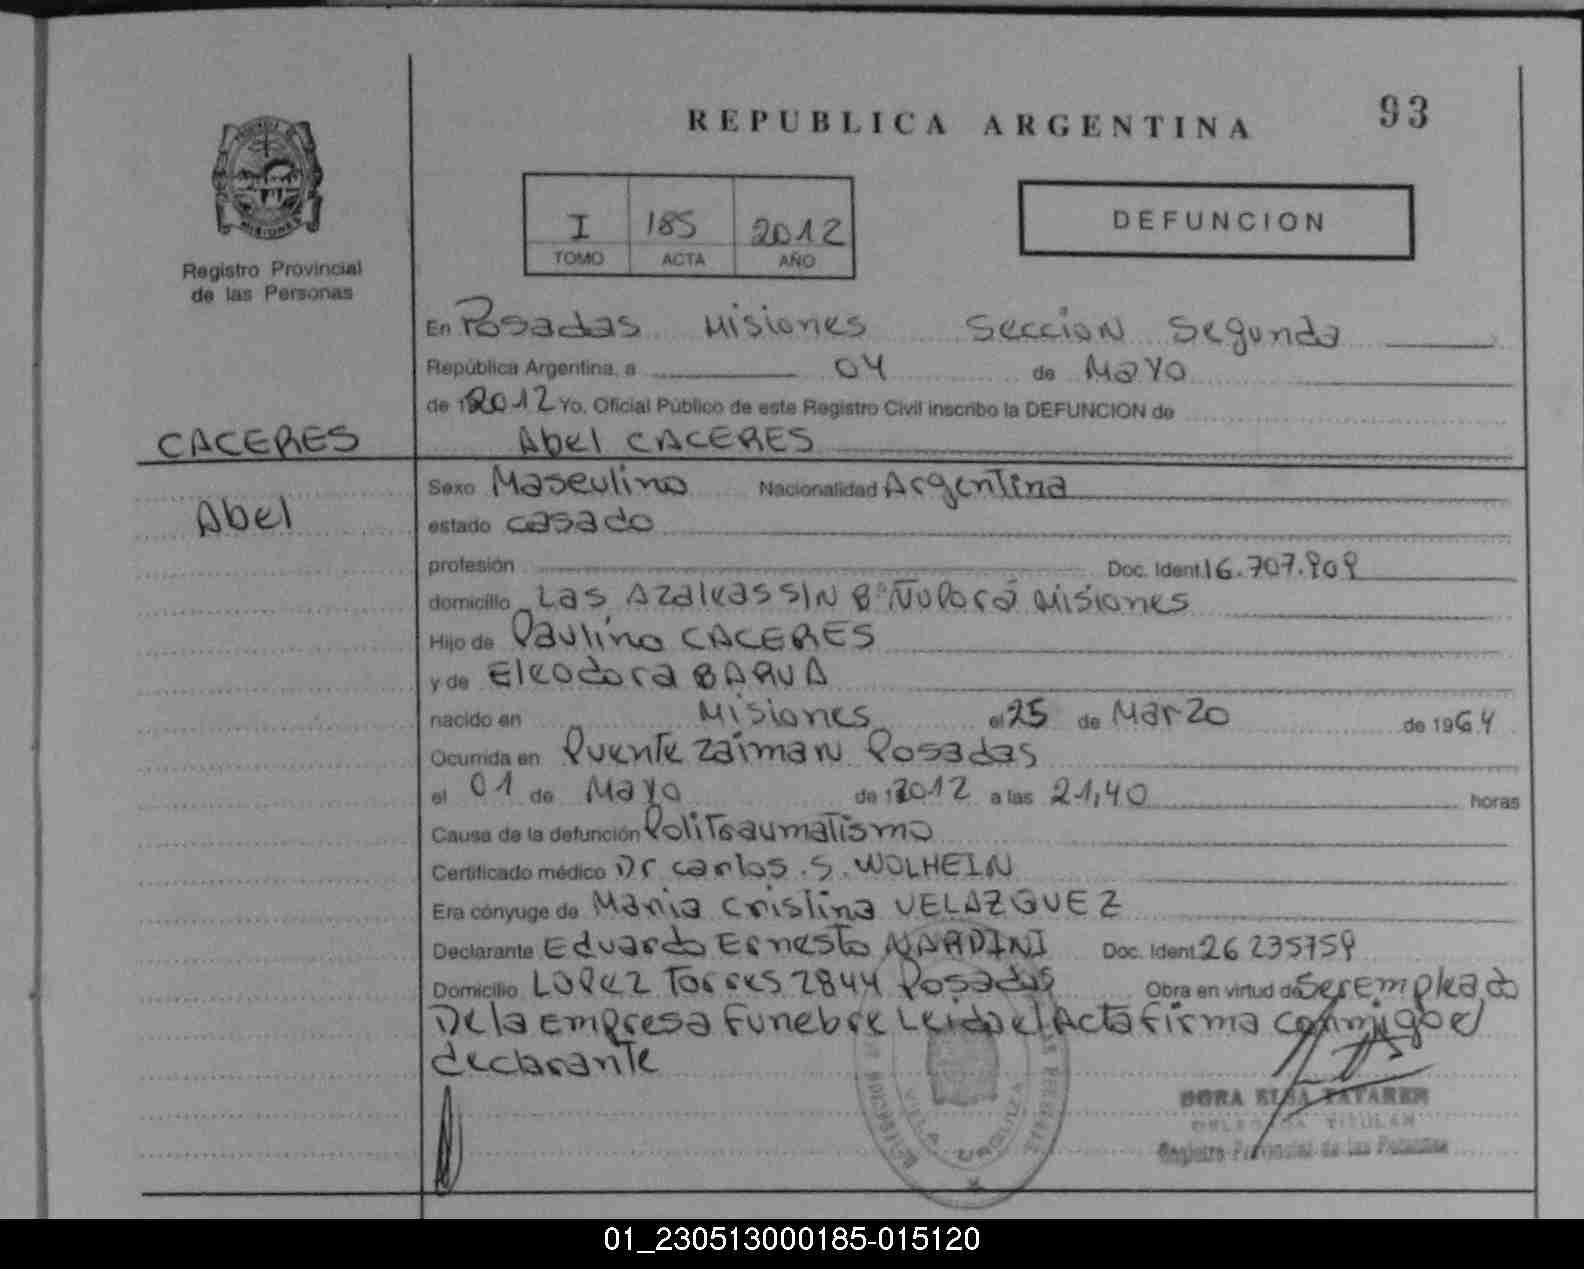 93
REPUBLICA ARGENTINA
MISIONES
Registro Provincial
de las Personas
I 185 2012
TOMO ACTA AÑO
DEFUNCION
En Posadas Misiones Seccion Segunda
República Argentina, a 04 de Mayo
de 2012 Yo, Oficial Público de este Registro Civil inscribo la DEFUNCION de
CACERES Abel CACERES
Abel
Sexo Masculino Nacionalidad Argentina
estado casado
profesión Doc. Ident. 16.707.909
domicilio Las Azaleas S/N Bº Ñu Porá Misiones
Hijo de Paulino CACERES
y de Eleodora BARUA
nacido en Misiones el 25 de Marzo de 1964
Ocurrida en Puente Zaiman Posadas
el 01 de Mayo de 2012 a las 21,40 horas
Causa de la defunción Politraumatismo
Certificado médico Dr carlos .S. WOLHEIN
Era cónyuge de Maria Cristina VELAZQUEZ
Declarante Eduardo Ernesto NARDINI Doc. Ident. 26 235759
Domicilio LOPEZ Torres 2844 Posadas Obra en virtud de Ser Empleado
De la Empresa Funebre Leida el Acta firma conmigo el
declarante
DORA ELSA TAVARES
DELEGADA TITULAR
Registro Provincial de las Personas
01_230513000185-015120